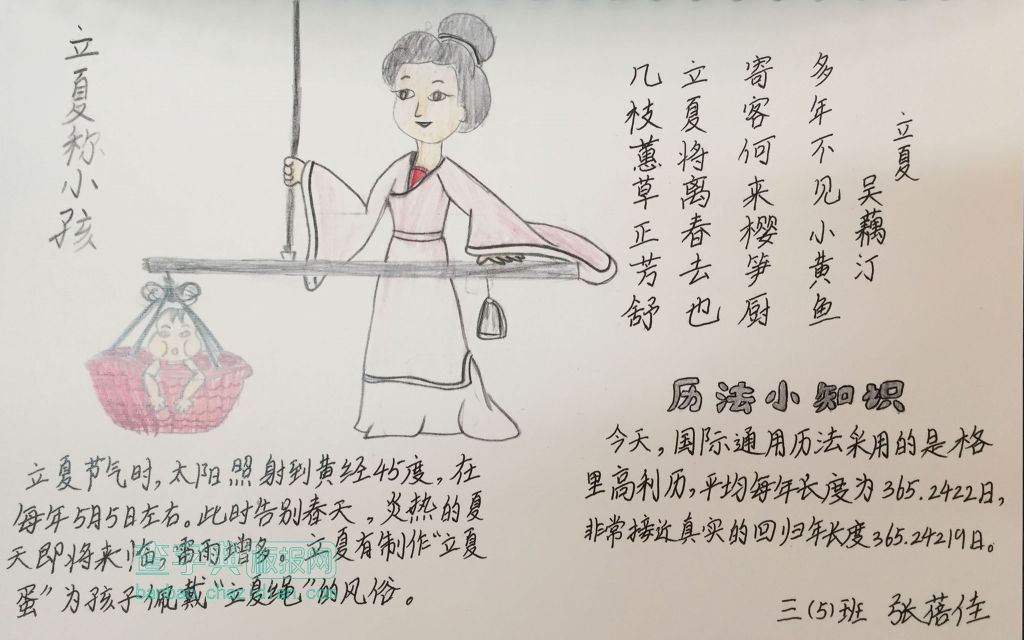 立夏称小孩
立夏
吴藕汀
多年不见小黄鱼
寄客何来樱笋厨
立夏将离春去也
几枝蕙草正芳舒
历法小知识
今天,国际通用历法采用的是格
里高利历,平均每年长度为365.2422日,
非常接近真实的回归年长度365.24219日。
立夏节气时,太阳照射到黄经45度,在
每年5月5日左右。此时告别春天,炎热的夏
天即将来临,雷雨增多。立夏有制作“立夏
蛋”为孩子佩戴“立夏绳”的风俗。
三(5)班 张蓓佳